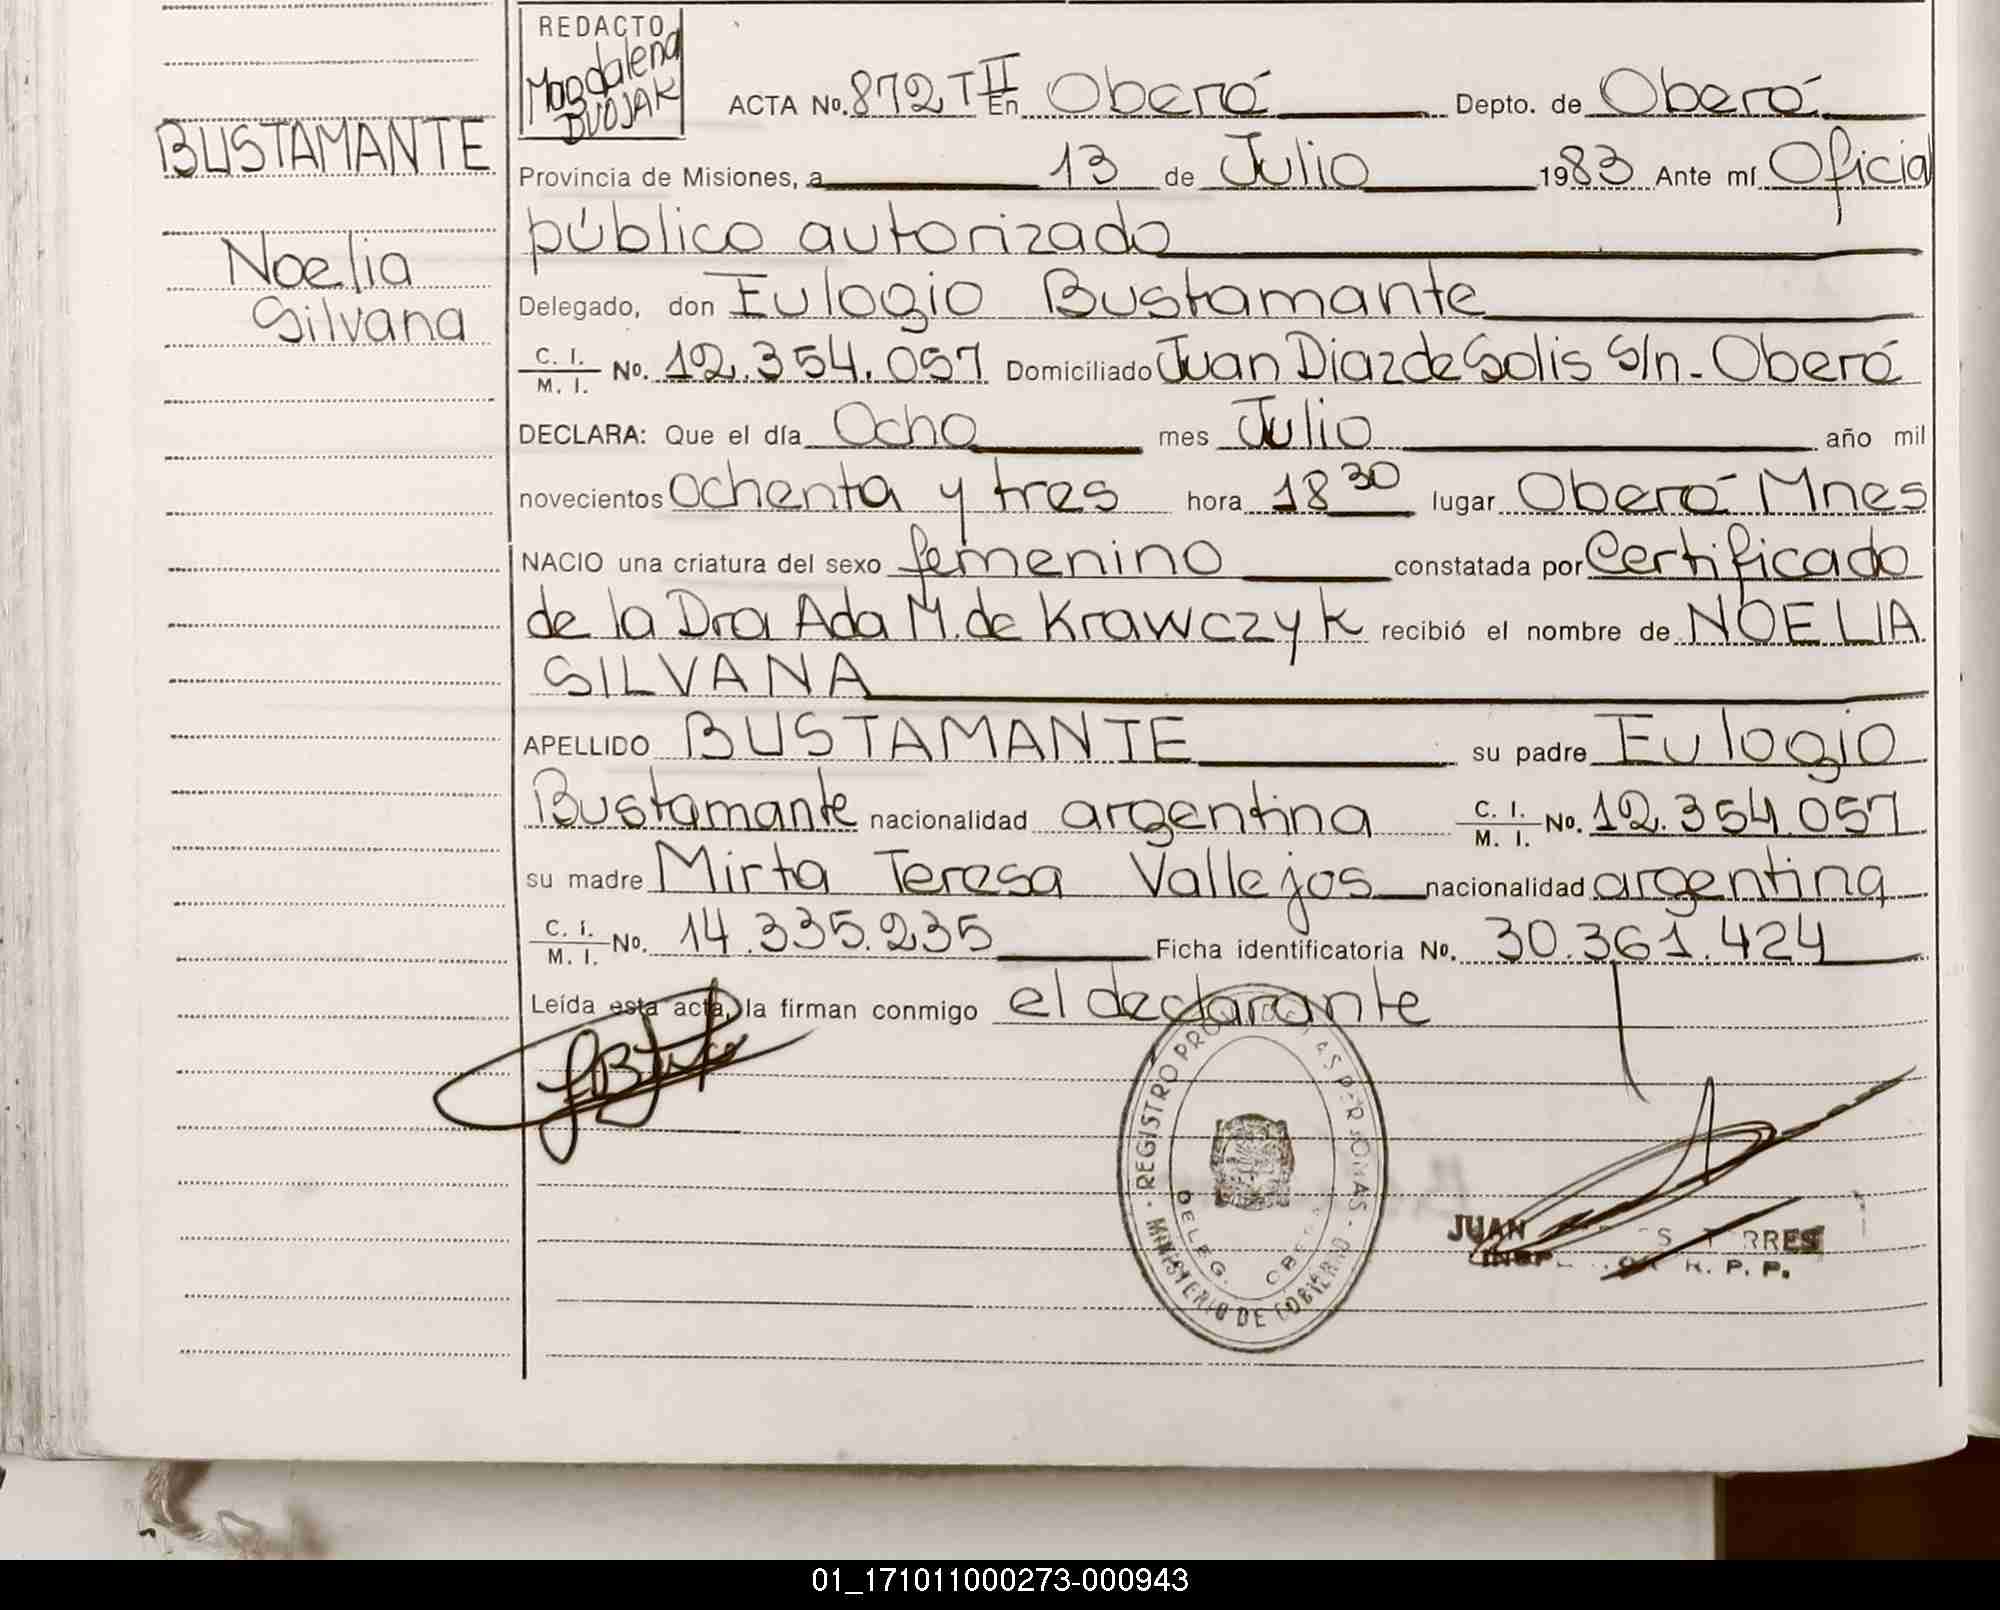 REDACTO
Magdalena
DVOJAK
BUSTAMANTE
Noelia
Silvana
ACTA No. 872 T II En Oberá Depto. de Oberá
Provincia de Misiones, a 13 de Julio 1983 Ante mí Oficial
público autorizado
Delegado, don Eulogio Bustamante
C. I. / M. I. No. 12.354.057 Domiciliado Juan Diaz de Solis S/n - Oberá
DECLARA: Que el día Ocho mes Julio año mil
novecientos ochenta y tres hora 18 30 lugar Oberá Mnes
NACIO una criatura del sexo femenino constatada por Certificado
de la Dra Ada M. de Krawczyk recibió el nombre de NOELIA
SILVANA
APELLIDO BUSTAMANTE su padre Eulogio
Bustamante nacionalidad argentina C. I. / M. I. No. 12.354.057
su madre Mirta Teresa Vallejos nacionalidad argentina
C. I. / M. I. No. 14.335.235 Ficha identificatoria No. 30.361.424
Leída esta acta, la firman conmigo el declarante
REGISTRO PERSONAS
MINISTERIO DE GOBIERNO
DELEG.
JUAN
R. P. P.
01_171011000273-000943